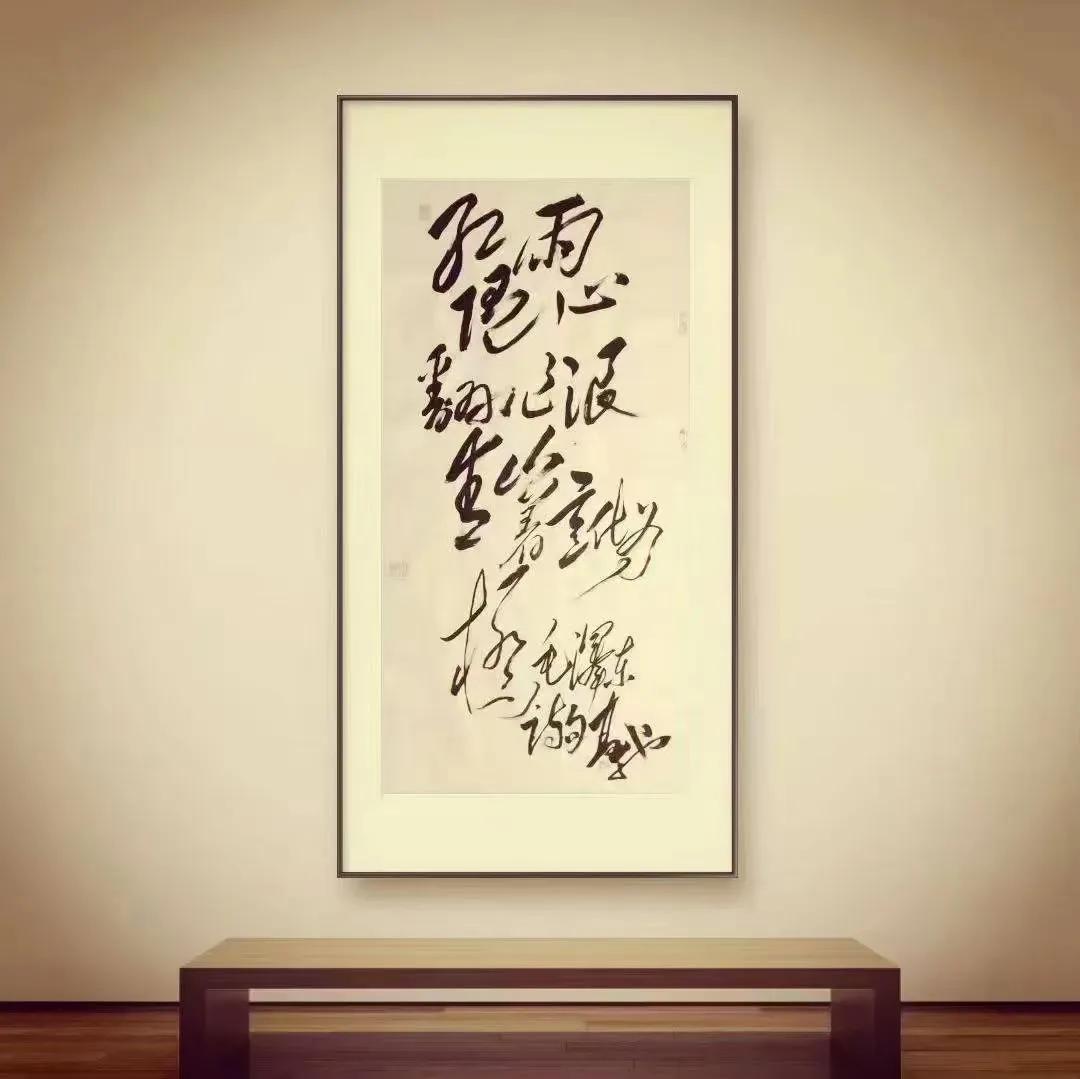 红雨
随心
翻作浪
青山
着意化为
桥
毛泽东
诗句